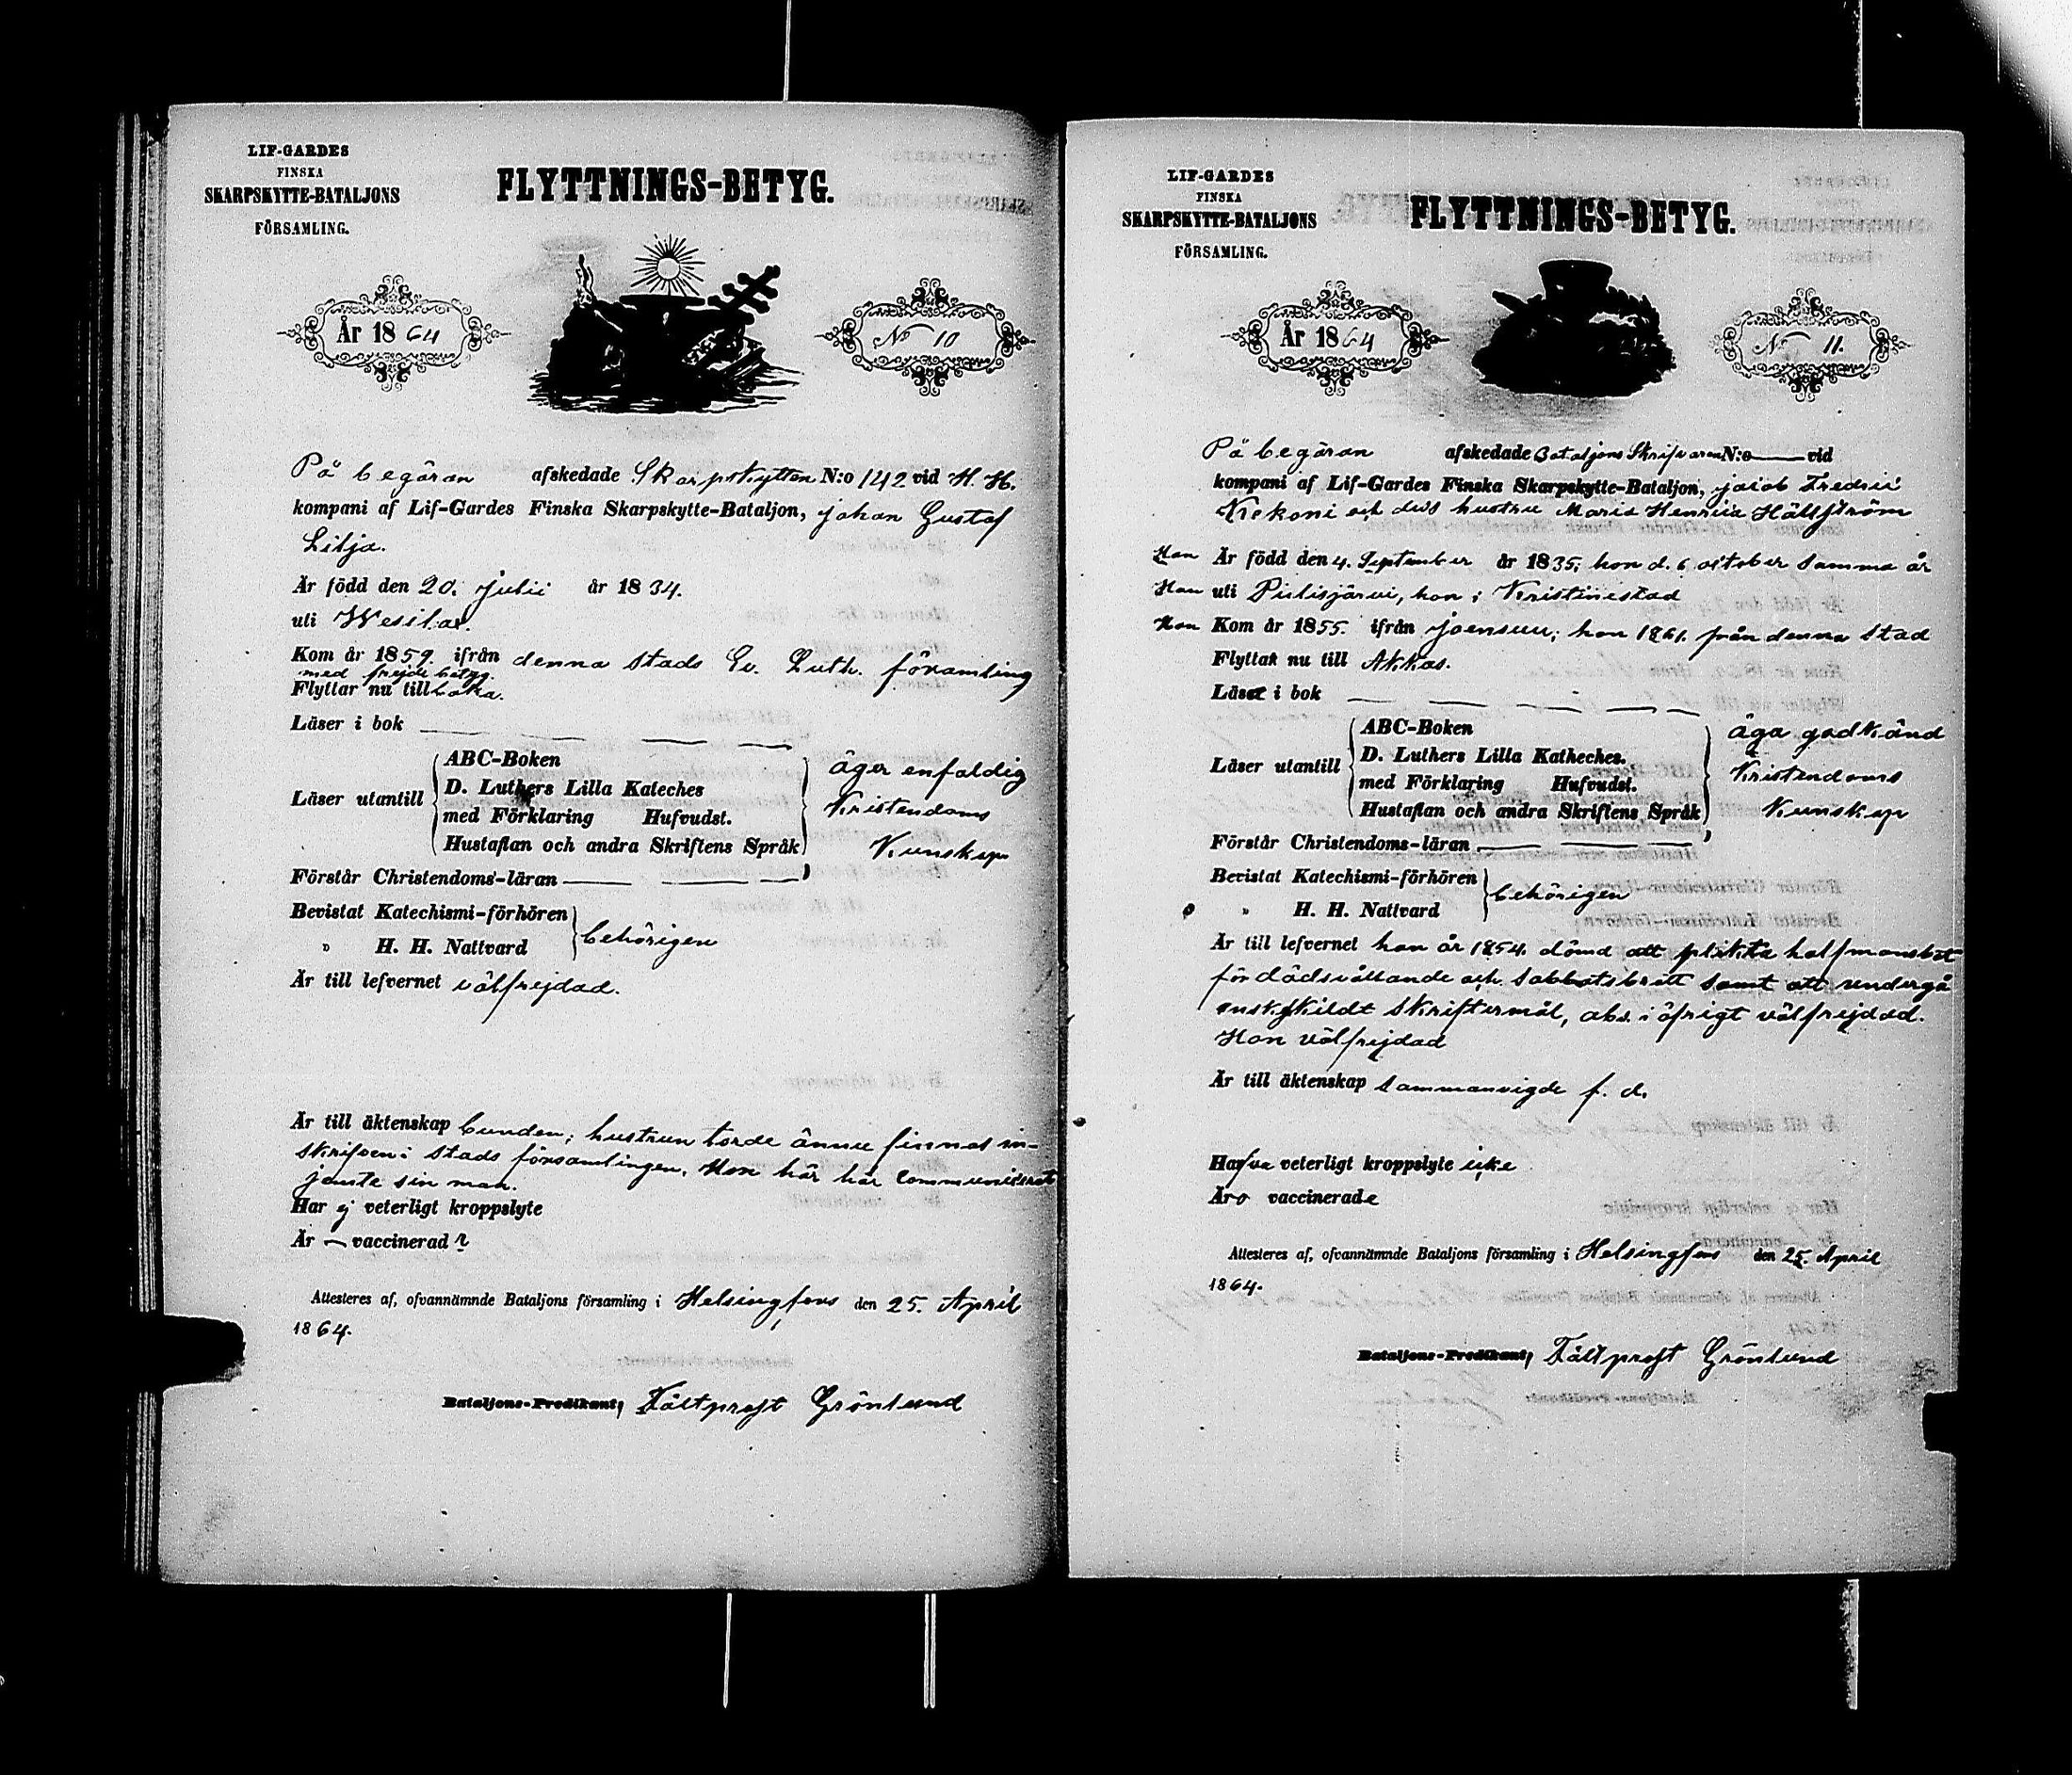 LIF-GARDES
FINSKA
SKARPSKYTTE-BATALJONS
FÖRSAMLING.
FLYTTNINGS-BETYG.
År 1864
No 10
På begäran afskedade Skarpskytten N:o 142 vid H. H.
kompani af Lif-Gardes Finska Skarpskytte-Bataljon, Johan Gustaf
Lilja.
Är född den 20. Julii år 1834.
uti Wesilax.
Kom år 1859. ifrån denna stads Ev. Luth. församling
med frejdebetyg.
Flyttar nu till baka.
Läser i bok
Läser utantill
ABC-Boken
D. Luthers Lilla Kateches
med Förklaring Hufvudst.
Hustaflan och andra Skriftens Språk
äger enfaldig
Kristendoms
Kunskap
Förstår Christendoms-läran
Bevistat Katechismi-förhören
" H. H. Nattvard
behörigen
Är till lefvernet välfrejdad.
Är till äktenskap bunden; hustrun torde ännu finnas in-
skrifven i stads församlingen. Hon här har Communicerat
jemte sin man.
Har ej veterligt kroppslyte
Är — vaccinerad ?
Attesteres af, ofvannämnde Bataljons församling i Helsingfors den 25. April
1864.
Bataljons-Predikant, Fältprost Grönlund
LIF-GARDES
FINSKA
SKARPSKYTTE-BATALJONS
FÖRSAMLING.
FLYTTNINGS-BETYG.
År 1864
No 11.
På begäran afskedade Bataljons Skrifvaren N:o — vid
kompani af Lif-Gardes Finska Skarpskytte-Bataljon, Jakob Fredric
Kekoni och dess hustru Maria Henrica Hällström
Han Är född den 4. September år 1835; hon d. 6 october samma år
Han uti Pielisjärvi, hon i Kristinestad
Han Kom år 1855. ifrån Joensuu; hon 1861. från denna stad
Flytta nu till Akkas.
Läsa i bok
Läser utantill
ABC-Boken
D. Luthers Lilla Katheches.
med Förklaring Hufvudst.
Hustaflan och andra Skriftens Språk
äga godkänd
Kristendoms
Kunskap
Förstår Christendoms-läran
Bevistat Katechismi-förhören
" H. H. Nattvard
behörigen
Är till lefvernet han år 1854. dömd att plikta half mansbot
för dådsvållande och Sabbatsbrott samt att undergå
enskildt skriftermål, i öfrigt välfrejdad.
Hon välfrejdad
Är till äktenskap sammanvigde f. d.
Hafva veterligt kroppslyte icke
Äro vaccinerade
Attesteres af, ofvannämnde Bataljons församling i Helsingfors den 25. April
1864.
Bataljons-Predikant, Fältprost Grönlund